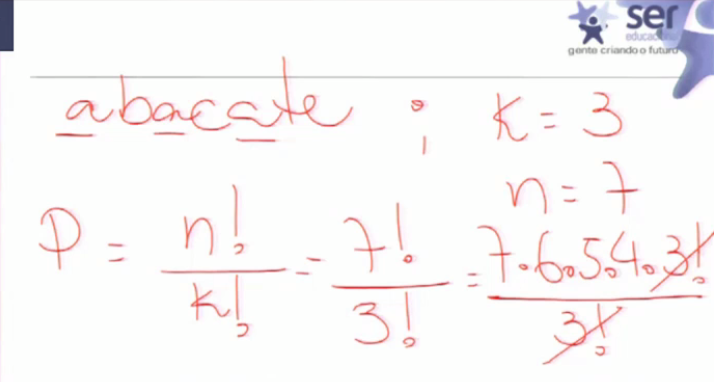 ser
educacional
gente criando o futuro
abacate ; k = 3
n = 7
P = n!/k! = 7!/3! = 7.6.5.4.3!/3!